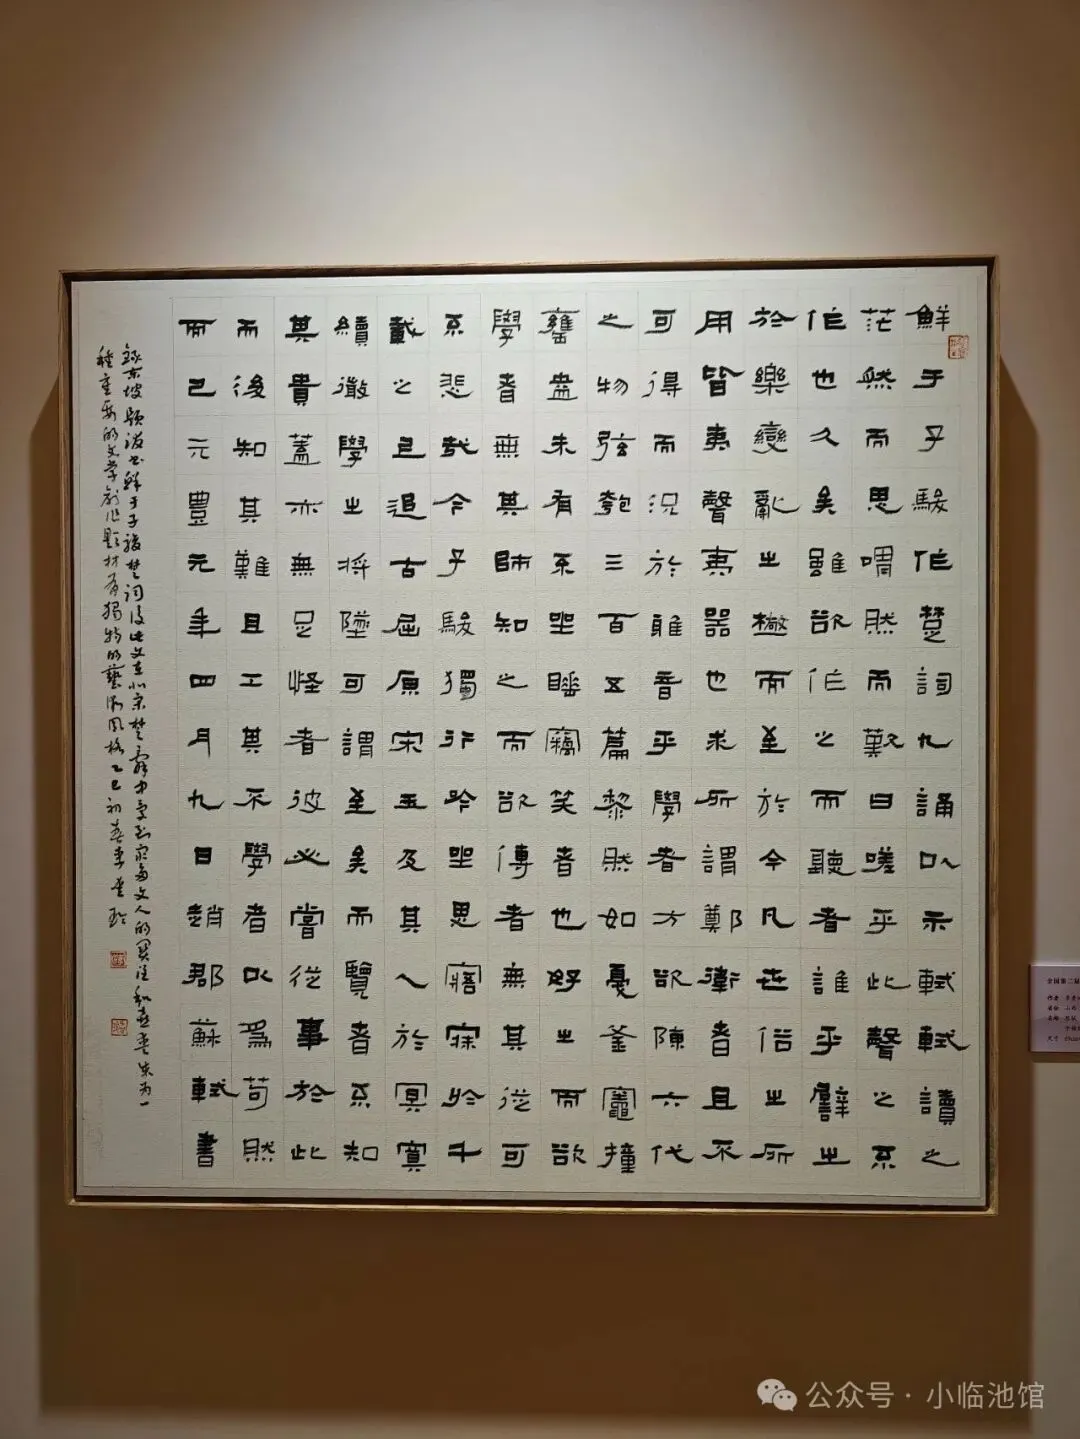 鮮于子駿作楚詞九誦以示軾軾讀之
茫然而思喟然而歎曰嗟乎此聲之不
作也久矣雖欲作之而聽者誰乎譬之
於樂變亂之極而至於今凡世俗之所
用皆夷聲夷器也求所謂鄭衛者且不
可得而況於雅音乎學者方欲陳六代
之物弦匏三百五篇黎然如戛釜竈撞
甕盎未有不坐睡竊笑者也好之而欲
學者無其師知之而欲傳者無其從可
不悲哉今子駿獨行吟坐思寤寐於千
載之上追古屈原宋玉友其人於冥寞
續微學之將墜可謂至矣而覽者不知
其貴蓋亦無足怪者彼必嘗從事於此
而後知其難且工其不學者以爲苟然
而已元豊元年四月九日趙郡蘇軾書
錄東坡題跋書鮮于子駿楚詞後此文在北宋楚辭中受到眾多文人的關注和喜愛成为一
種重要的文学創作題材有獨特的藝術風格乙巳初春李
全国第二届
作者
尺寸
公众号 · 小临池馆